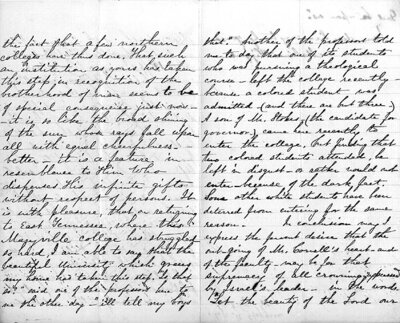 the fact that a few northern
colleges have this done. That such
an institution as yours has taken
this step in recognition of the
brotherhood of man seems to be
of special consequence just now—
—it is so like the broad shining
of the sun whose rays fall upon
all with equal cheerfulness—
better—it is a feature, in
resemblance to Him who
dispenses His infinite gifts
without respect of persons. It
is with pleasure, that on returning
to East Tennessee, where this
Maryville college has struggled
so hard, I am able to say that the
beautiful University which
has taken this step. "Is that
so" said one of the professors to
me the other day "I'll tell my boys
that." brother of the professor told
me to day that one of its students
who was pursuing a theological
course—left the college recently—
because a colored student was
admitted (and there are but three)
A son of Mr. Stokes (the candidate for
governor) came here recently to
enter the college, but finding that
two colored students attended he
left in disgust—or rather would not
enter—because of the dark fact.
Some other white students have been
deterred from entering for the same
reason. In conclusion may I
express the fervent desire that the
out-going of Mr. Cornell's heart—and
of the faculty—may be for that
supremacy of all crowning expressed
by Israel's leader—in the words,
"Let the beauty of the Lord our